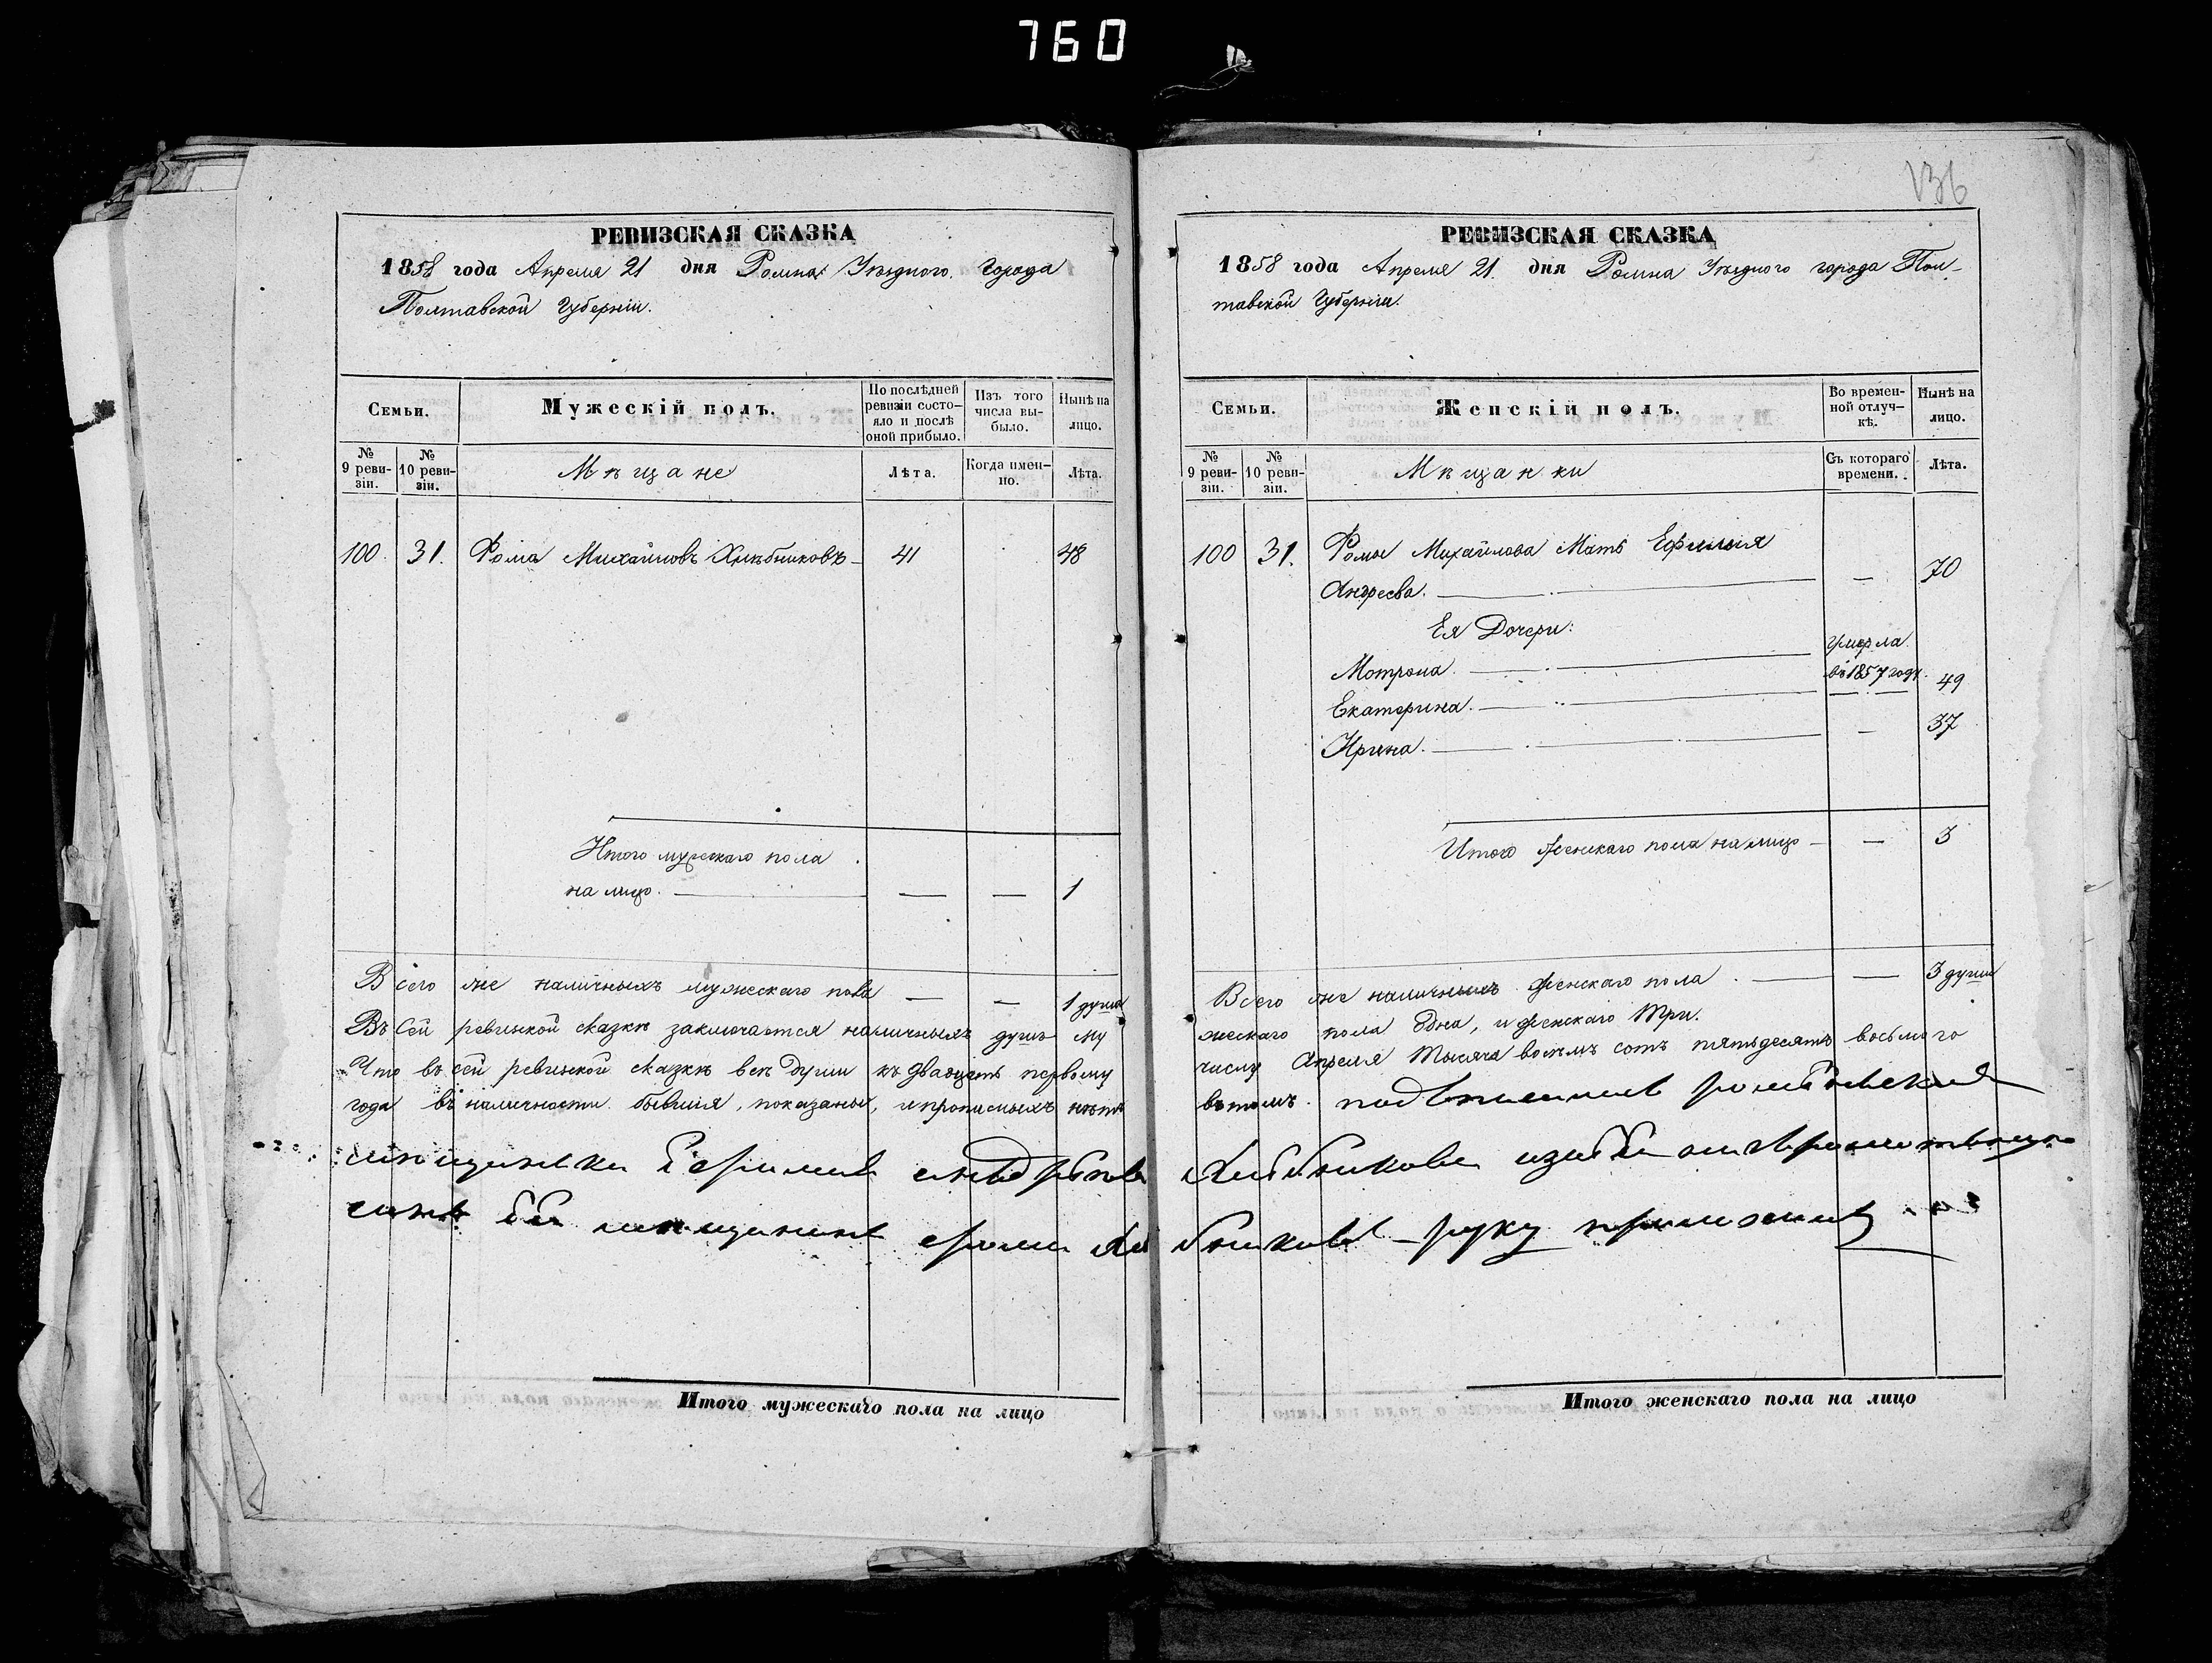 760
136
РЕВИЗСКАЯ СКАЗКА
1858 года Апреля 21 дня Ромна Уѣзднаго города
Полтавской Губерніи.
Семьи.
Мужескій полъ.
По послѣдней
ревизіи состо-
яло и послѣ
оной прибыло.
Изъ того
числа вы-
было.
Нынѣ на
лицо.
№
9 реви-
зіи.
№
10 реви-
зіи.
Мѣщане
Лѣта.
Когда имен-
но.
Лѣта.
100. 31. Фома Михайловъ Хлѣбниковъ 41 48
Итого мужескаго пола
на лицо. — — 1
Всего же наличныхъ мужескаго пола — — 1 душа
Въ Сей ревизкой сказкѣ заключается наличныхъ душъ му
Что въ сей ревизкой сказкѣ всѣ души къ двадцать первому
года въ наличности бывшія, показаны, и прописныхъ нѣтъ
мѣщанки
мѣщанинъ
РЕВИЗСКАЯ СКАЗКА
1858 года Апреля 21. дня Ромна Уѣзднаго города Пол-
тавской Губерніи.
Семьи.
Женскій полъ.
Во времен-
ной отлуч-
кѣ.
Нынѣ на
лицо.
№
9 реви-
зіи.
№
10 реви-
зіи.
Мѣщанки
Съ котораго
времени.
Лѣта.
100 31. Фомы Михайлова Мать Ефимія
Андреева. — 70
Ея Дочери:
Мотрона. Умерла
въ 1857 году.
Екатерина. 49
Ирина. — 37
Итого женскаго пола на лицо — 3
Всего же наличныхъ женскаго пола. — 3 души
жескаго пола Одна, и женскаго Три.
числу Апреля Тысяча восемь сотъ пятьдесятъ восьмого
въ томъ
руку приложилъ
Итого мужескаго пола на лицо
Итого женскаго пола на лицо